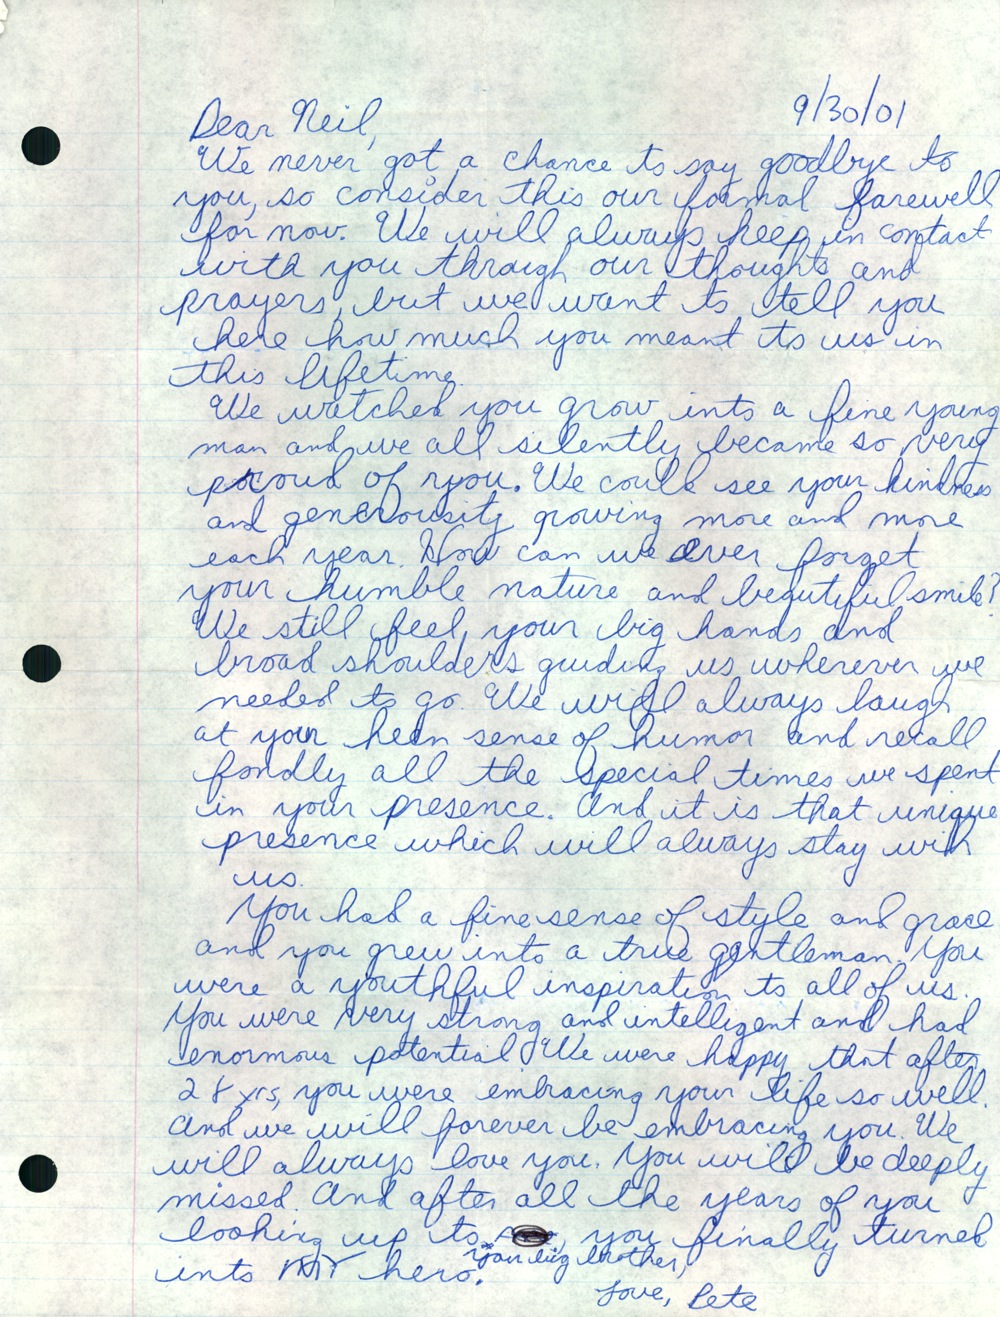 9/30/01
Dear Neil,
We never got a chance to say goodbye to
you, so consider this our formal farewell
for now. We will always keep in contact
with you through our thoughts and
prayers, but we want to tell you
here how much you meant to us in
this lifetime.
We watched you grow into a fine young
man and we all silently became so very
proud of you. We could see your kindness
and generousity growing more and more
each year. How can we ever forget
your humble nature and beautiful smile?
We still feel your big hands and
broad shoulders guiding us wherever we
needed to go. We will always laugh
at your keen sense of humor and recall
fondly all the special times we spent
in your presence. And it is that unique
presence which will always stay with
us.
You had a fine sense of style and grace
and you grew into a true gentleman. You
were a youthful inspiration to all of us.
You were very strong and intelligent and had
enormous potential. We were happy that after
28 yrs, you were embracing your life so well.
And we will forever be embracing you. We
will always love you. You will be deeply
missed. And after all the years of you
looking up to , you finally turned
*your big brother,
into MY hero.
Love, Pete